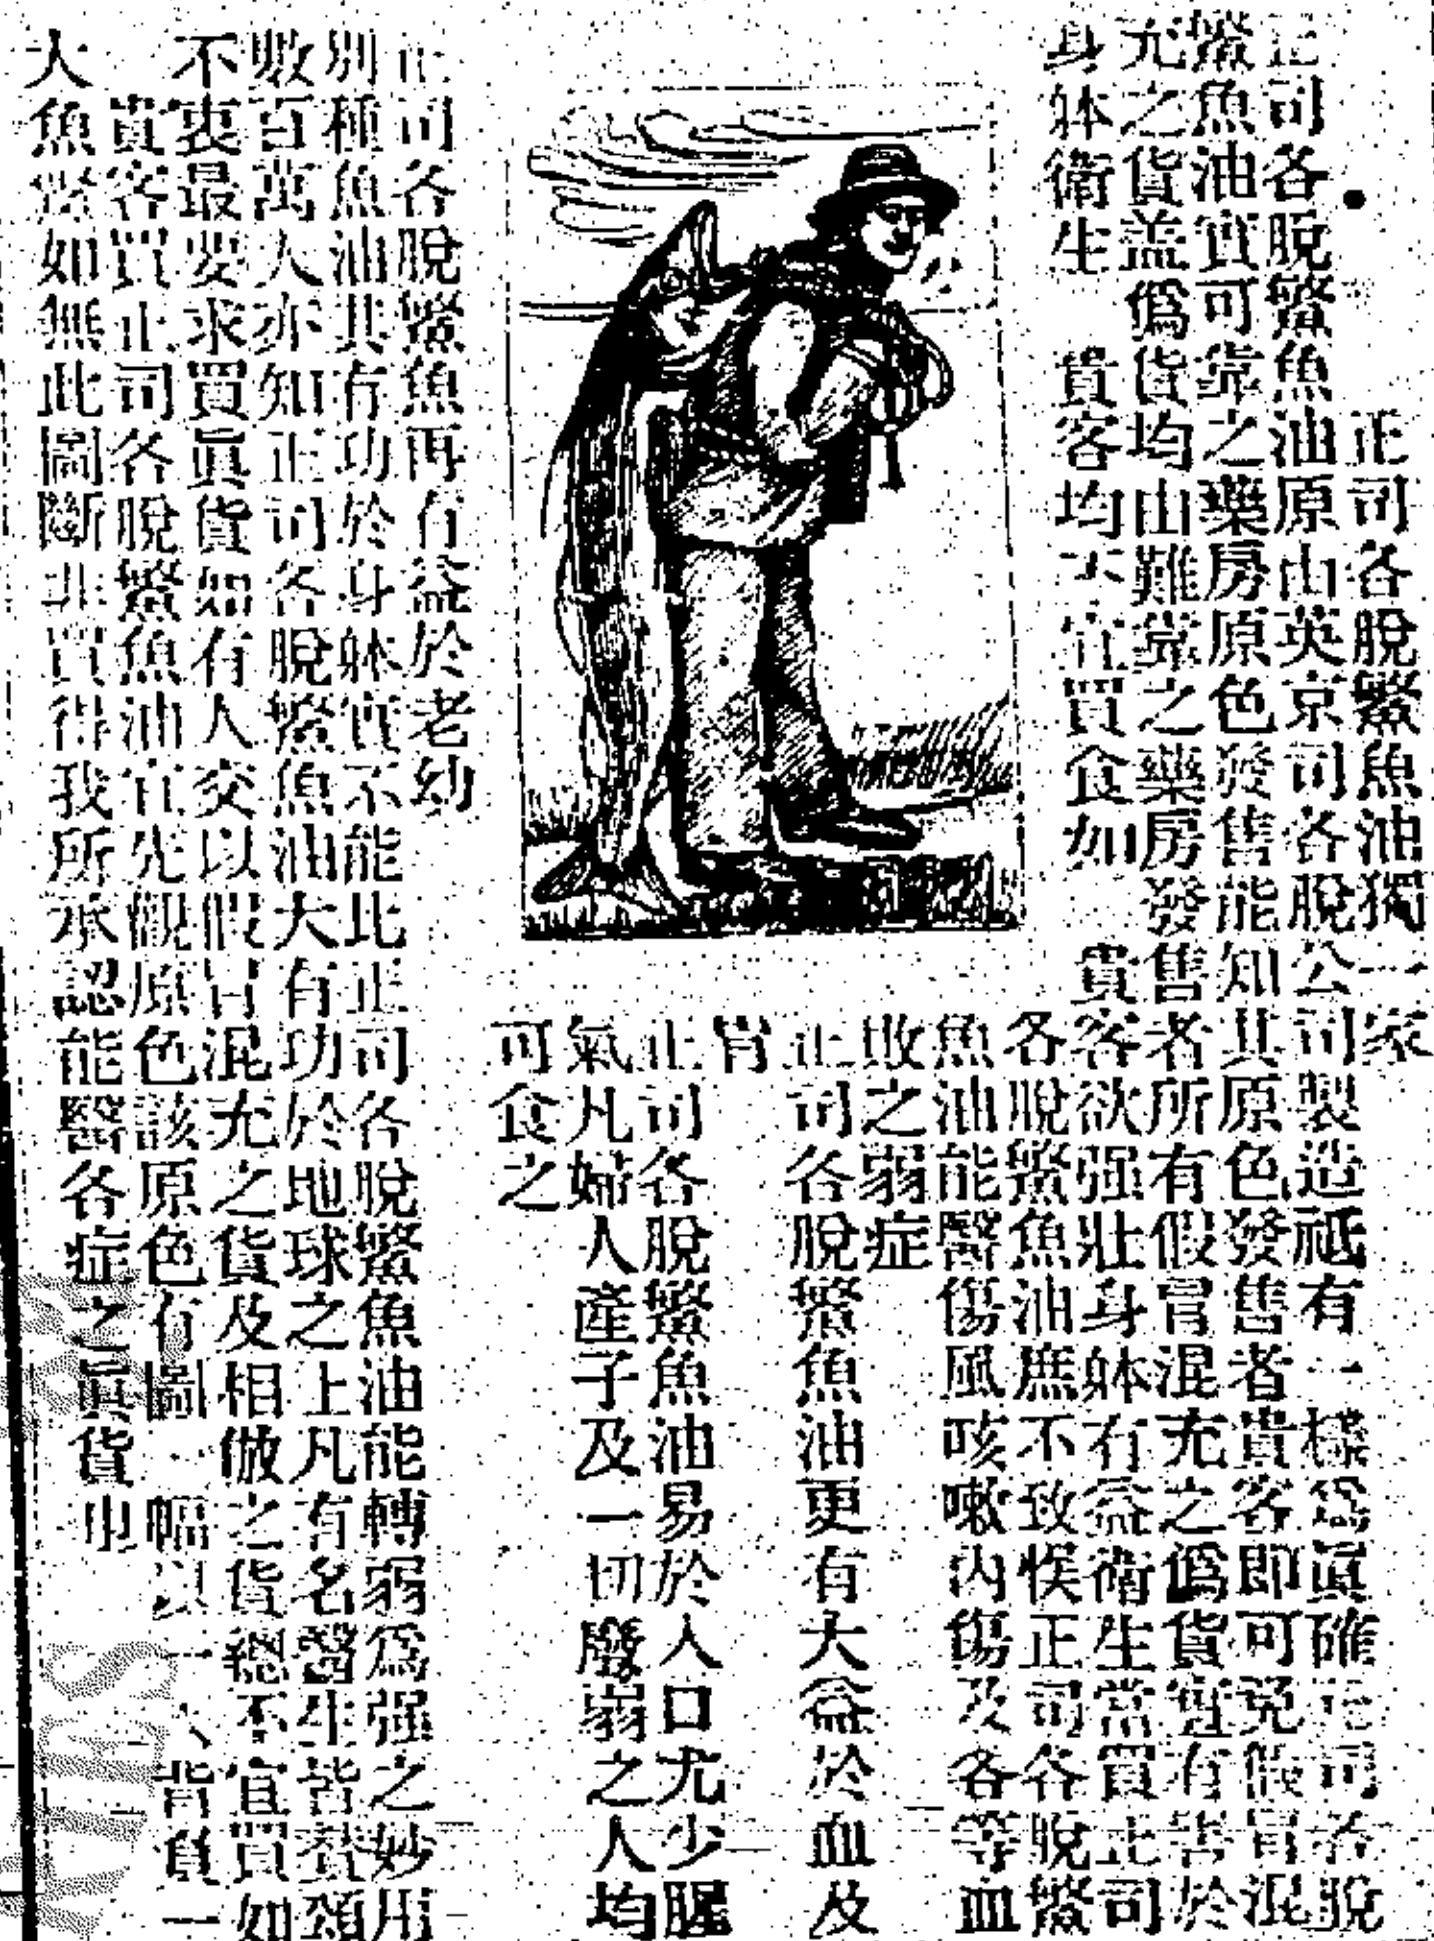 正司各脫鰵魚油獨一家
正司各脫鰵魚油原由英京司各脫公司製造祗有一樣爲眞確正司各脫
鰵魚油實可靠之藥房原色發售能知其原色發售者貴客即可免假冒混
充之貨蓋僞貨均由難靠之藥房發售者所有假冒混充之僞貨實有害於
身躰衛生 貴客均不宜買食如 貴客欲强壯身躰有益衛生當買正司
各脫鰵魚油庶不致悞正司各脫鰵
魚油能醫傷風咳嗽內傷及各等血
敗之弱症
正司各脫鰵魚油更有大益於血及
胃
正司各脫鰵魚油易於入口尤少腥
氣凡婦人產子及一切廢弱之人均
可食之
正司各脫鰵魚再有益於老幼
別種魚油其有功於身躰實不能比正司各脫鰵魚油能轉弱爲强之妙用
數百萬人亦知正司各脫鰵魚油大有功於地球之上凡有名醫生皆贊頌
不衷最要求買眞貨如有人交以假冒混充之貨及相倣之貨總不宜買如
貴客買正司各脫鰵魚油宜先觀原色該原色有圖一幅以一人背負一
大魚如無此圖斷非買得我所承認能醫各症之眞貨也